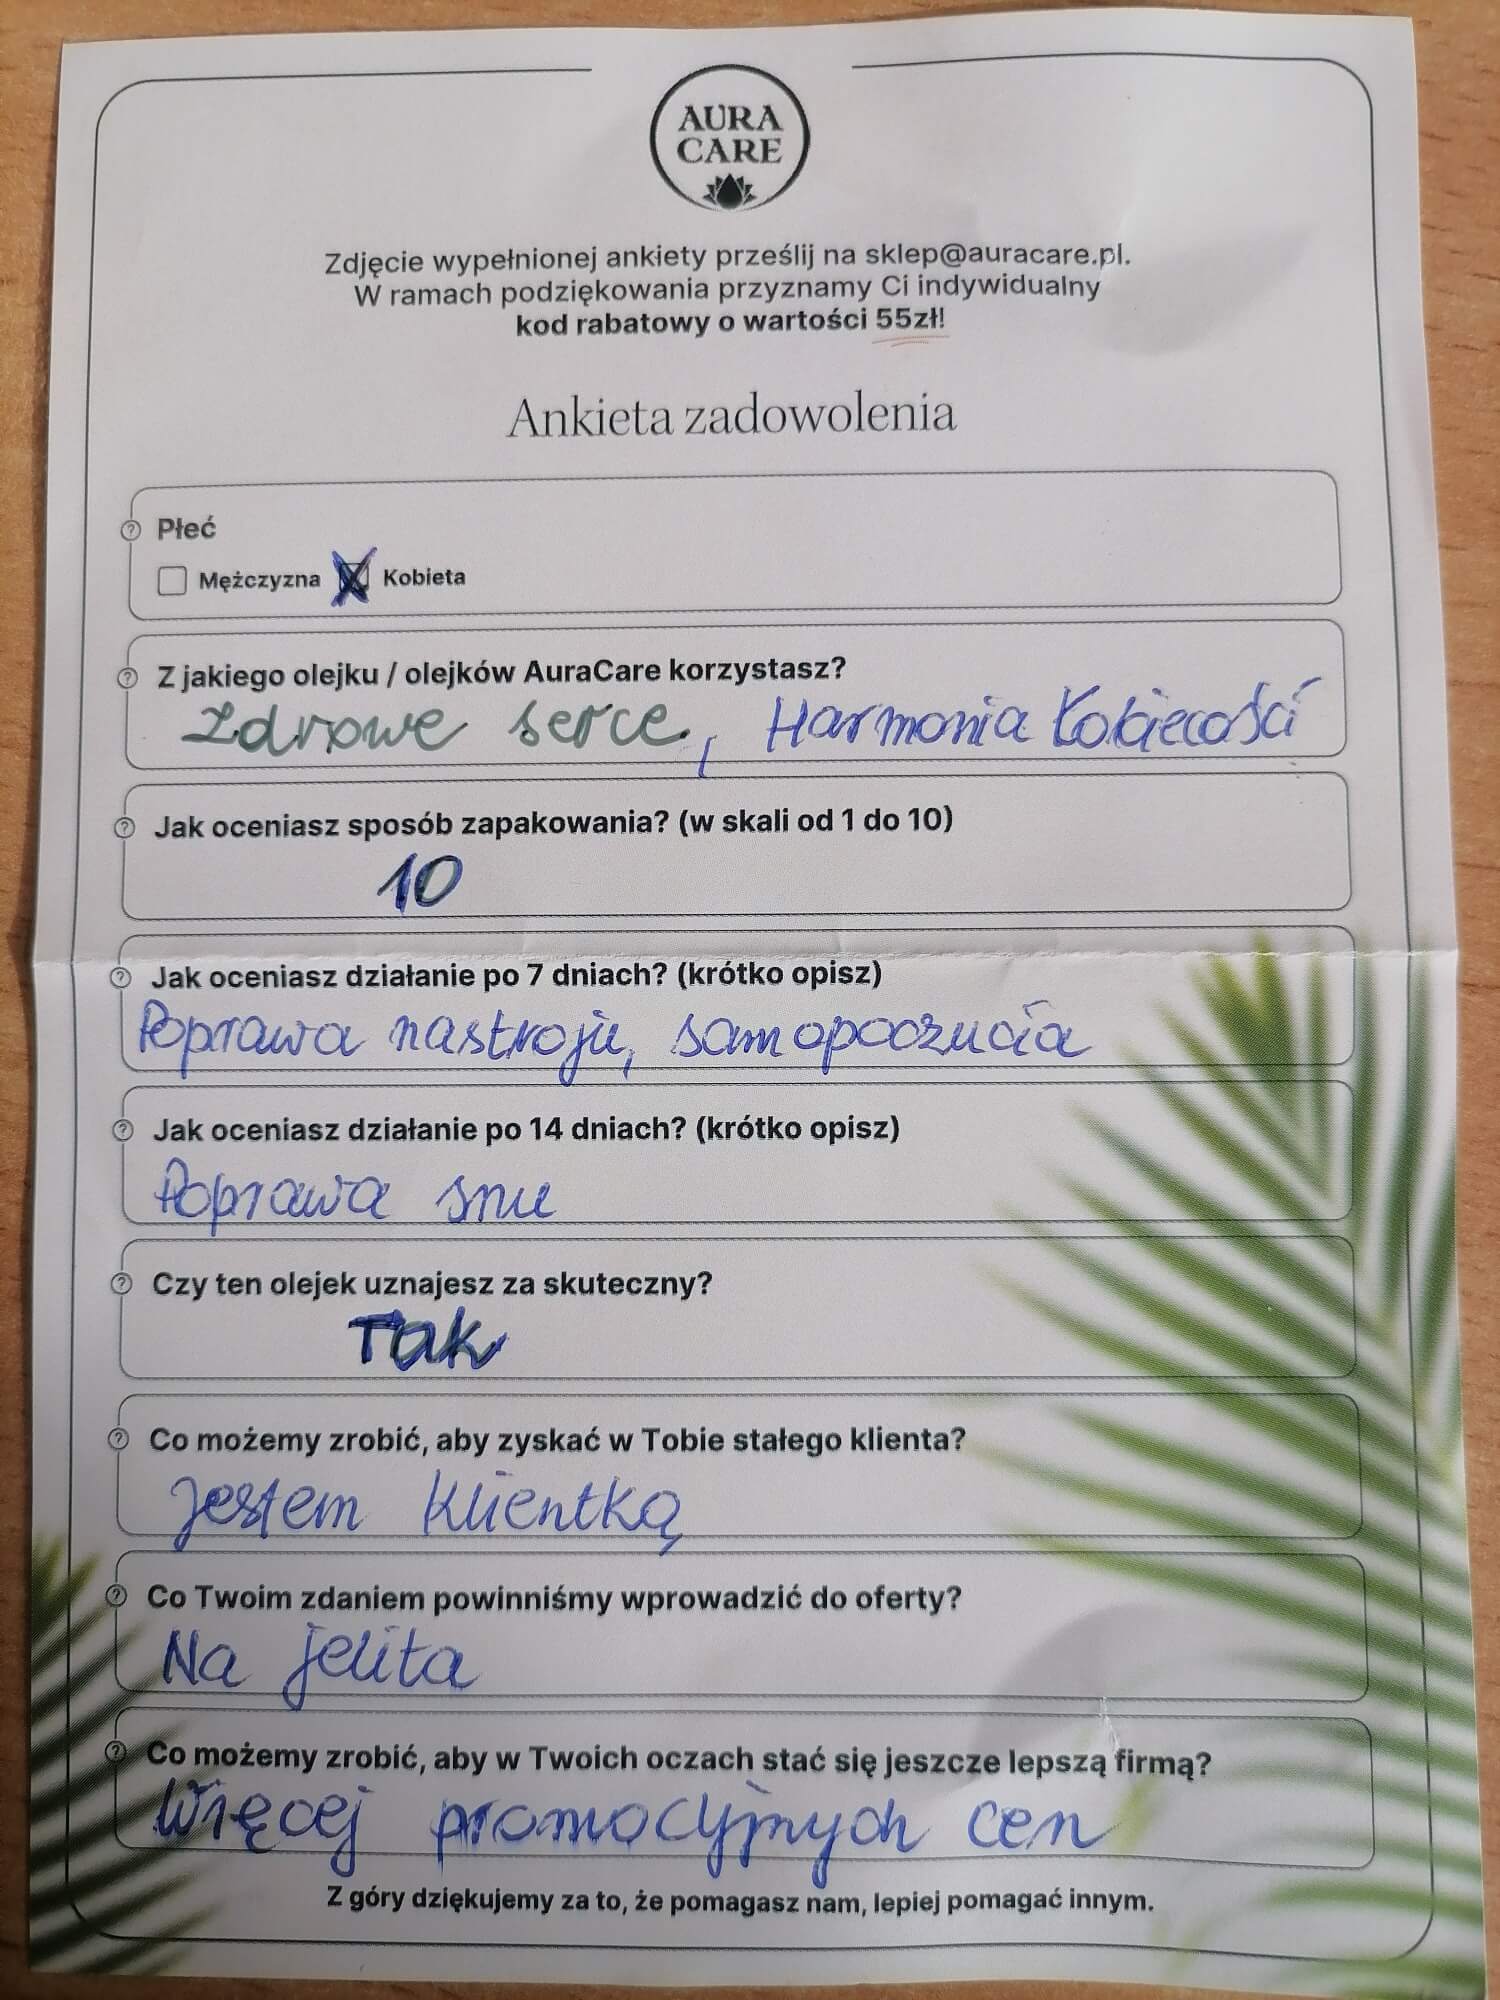 AURA
CARE
Zdjęcie wypełnionej ankiety prześlij na sklep@auracare.pl.
W ramach podziękowania przyznamy Ci indywidualny
kod rabatowy o wartości 55zł!
Ankieta zadowolenia
Płeć
Mężczyzna X Kobieta
Z jakiego olejku / olejków AuraCare korzystasz?
Zdrowe serce, Harmonia kobiecości
Jak oceniasz sposób zapakowania? (w skali od 1 do 10)
10
Jak oceniasz działanie po 7 dniach? (krótko opisz)
Poprawa nastroju, samopoczucia
Jak oceniasz działanie po 14 dniach? (krótko opisz)
Poprawa snu
Czy ten olejek uznajesz za skuteczny?
Tak
Co możemy zrobić, aby zyskać w Tobie stałego klienta?
Jestem klientką
Co Twoim zdaniem powinniśmy wprowadzić do oferty?
Na jelita
Co możemy zrobić, aby w Twoich oczach stać się jeszcze lepszą firmą?
Więcej promocyjnych cen
Z góry dziękujemy za to, że pomagasz nam, lepiej pomagać innym.